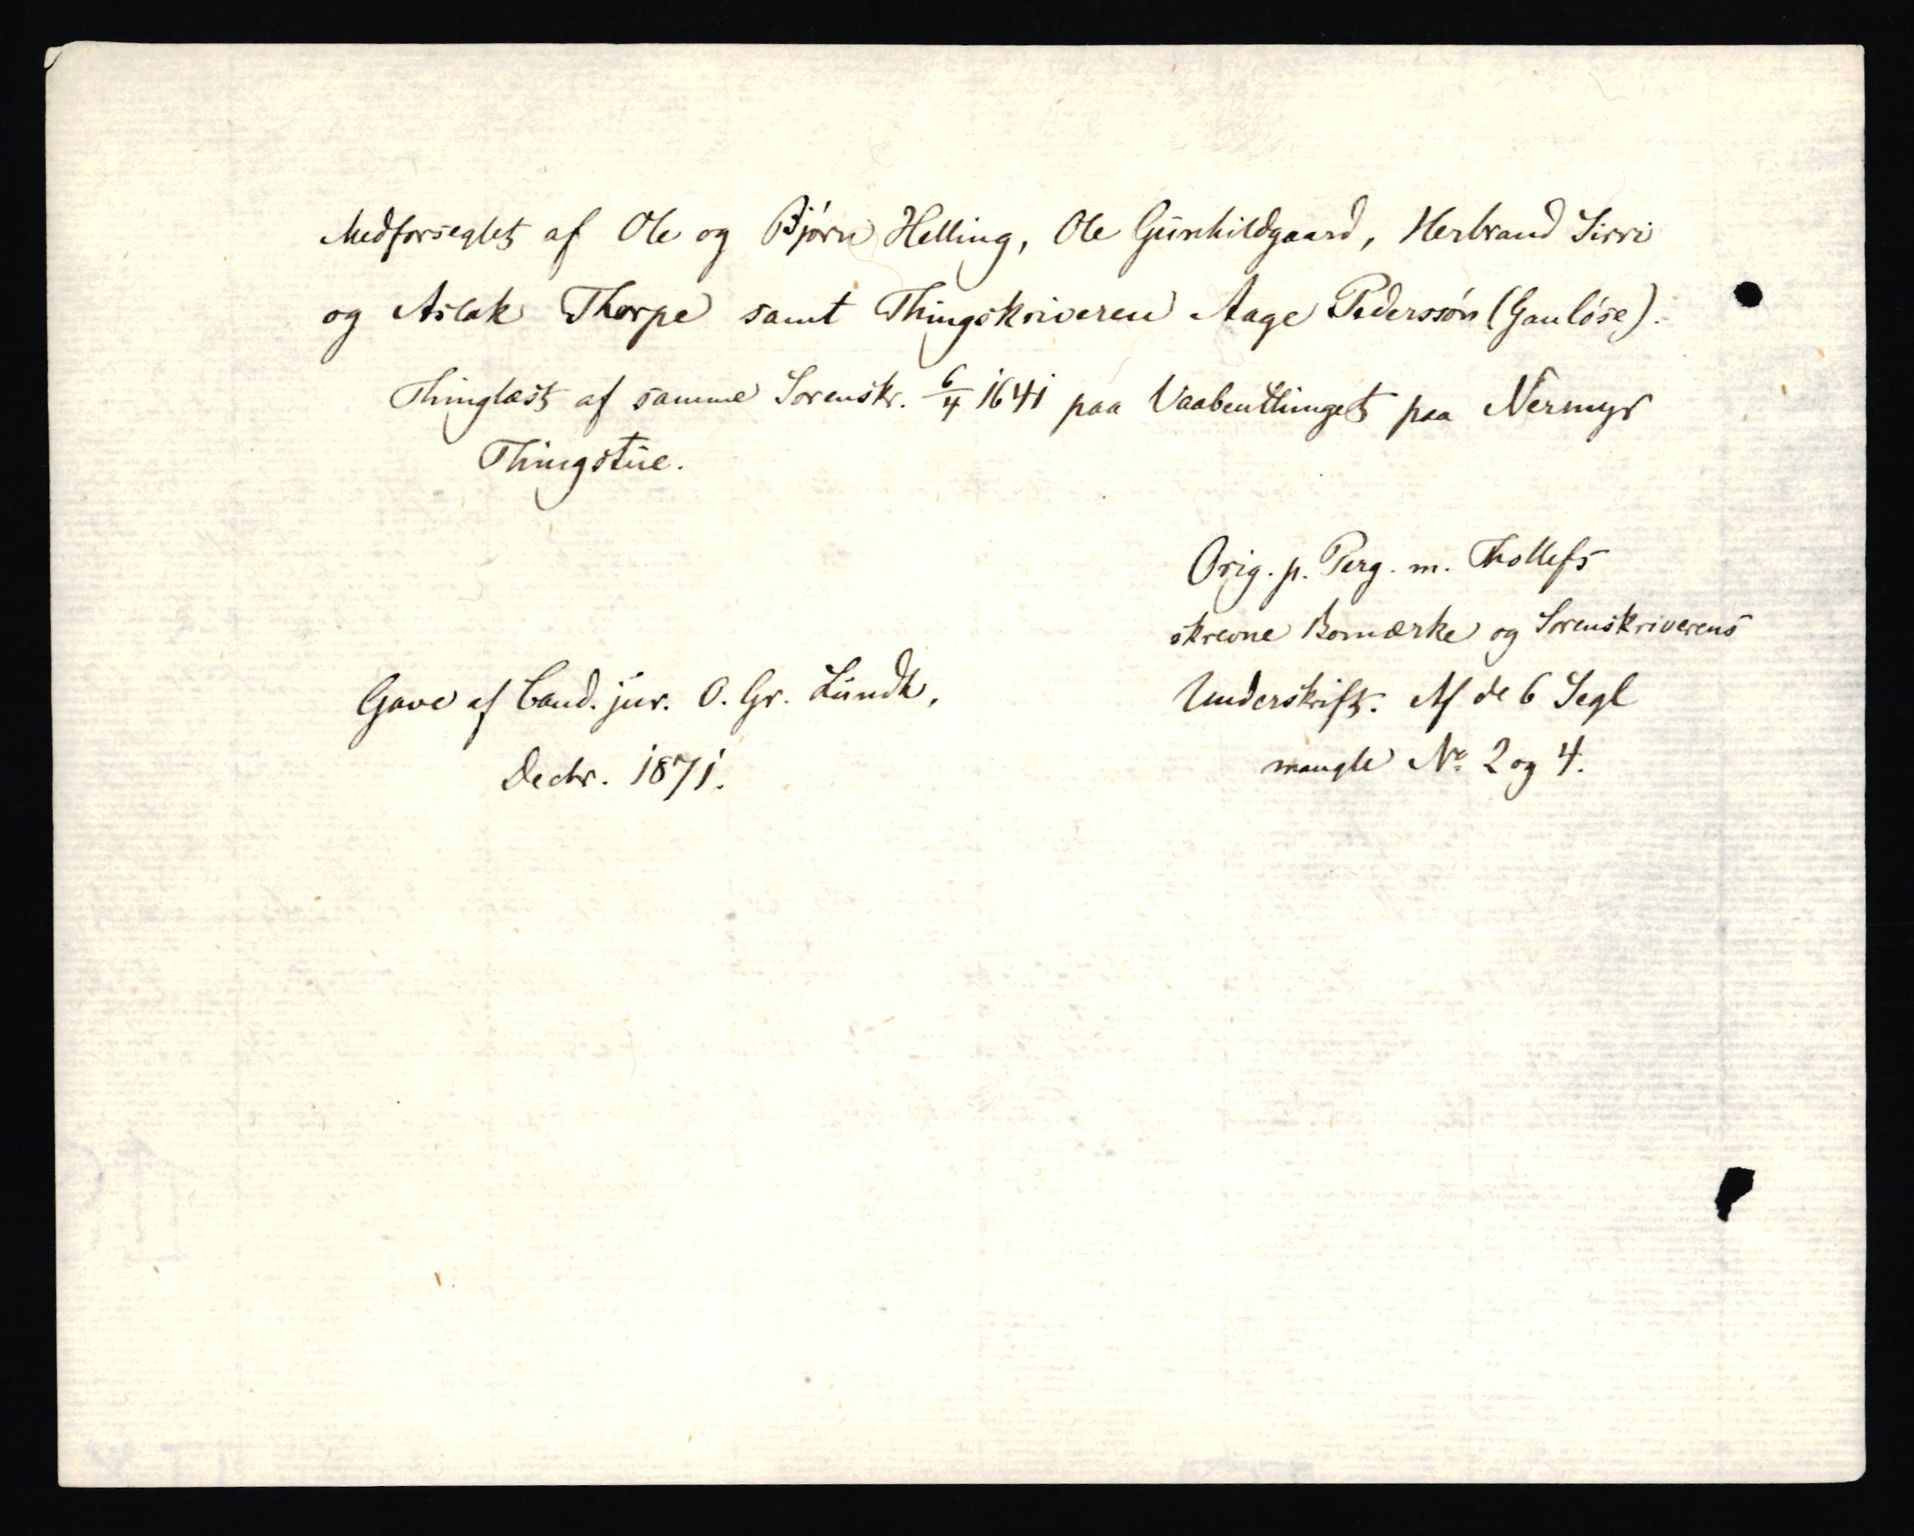 Medforseglet af Ole og Bjørn Helling, Ole Gunhildgaard, Herbrand Sirri
og Aslak Thorpe samt Thingskriveren Aage Pederssøn (Ganløse).
Thinglæst af samme Sorenskr. 6/4 1641 paa Vaabenthinget paa Nermyr
Thingstue.
Orig. p. Perg. m. Thollefs
skrevne Bomærke og Sorenskriverens
Underskrift. Af de 6 Segl
mangle No. 2 og 4.
Gave af Cand. jur. O. Gr. Lundh,
Decbr. 1871.